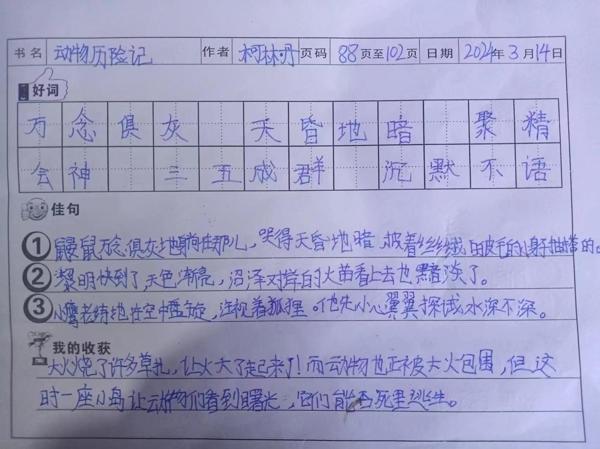 书名 动物历险记 作者 柯林丹 页码 88页至102页 日期 2024年3月14日
好词
万念俱灰 天昏地暗 聚精
会神 三五成群 沉默不语
佳句
① 鼹鼠万念俱灰地躺在那儿，哭得天昏地暗，披着丝绒般皮毛的身子抽搐的。
② 黎明快到了，天色渐亮，沼泽对岸的火苗看上去也黯淡了。
③ 小鹰老练地在空中盘旋，注视着狐狸。他先小心翼翼探试水深不深。
我的收获
大火烧了许多草扎，让火大了起来了！而动物也正被大火包围，但这
时一座小岛让动物们看到曙光，它们能否死里逃生。